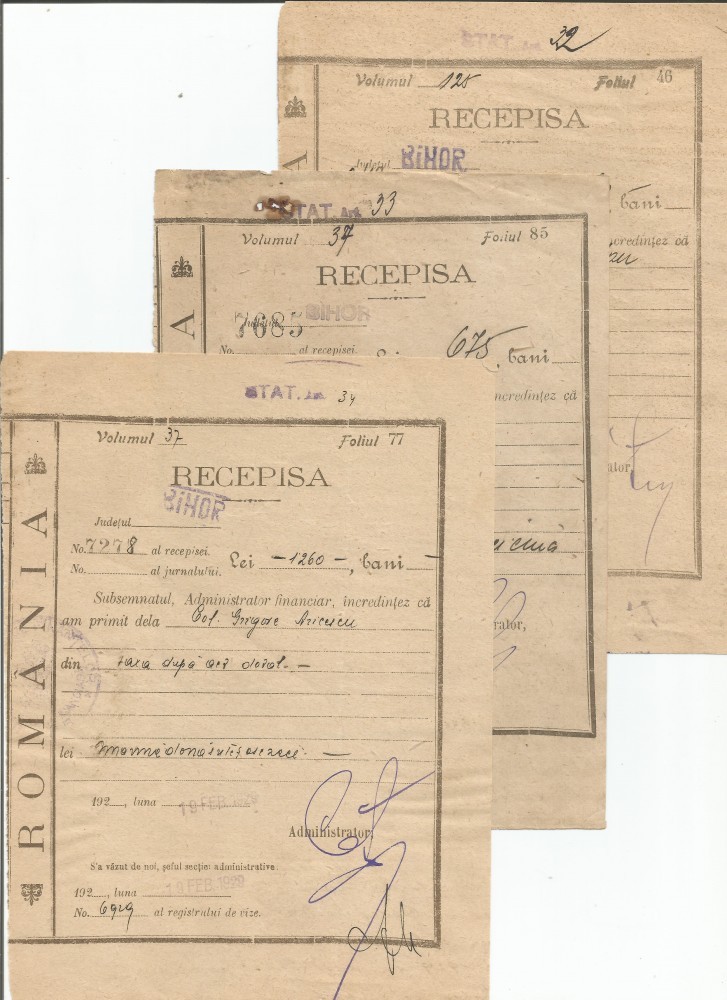 STAT. 32
Volumul 125 Foliul 46
RECEPISA
Judeţul BIHOR
bani
încredinţez că
STAT. 33
Volumul 37 Foliul 85
RECEPISA
Judeţul BIHOR
7685
No. al recepisei.
675, bani
încredinţez că
STAT. 34
Volumul 37 Foliul 77
RECEPISA
BIHOR
Judeţul
No. 7278 al recepisei.
No. al jurnalului.
Lei -1260-, bani -
Subsemnatul, Administrator financiar, încredinţez că
am primit dela Col. Grigore
din taxa după act dotal. -
lei
192 , luna 19 FEB. 1929
Administrator,
S'a văzut de noi, şeful secţiei administrative:
192 , luna 19 FEB. 1929
No. 6929 al registrului de vize.
ROMÂNIA